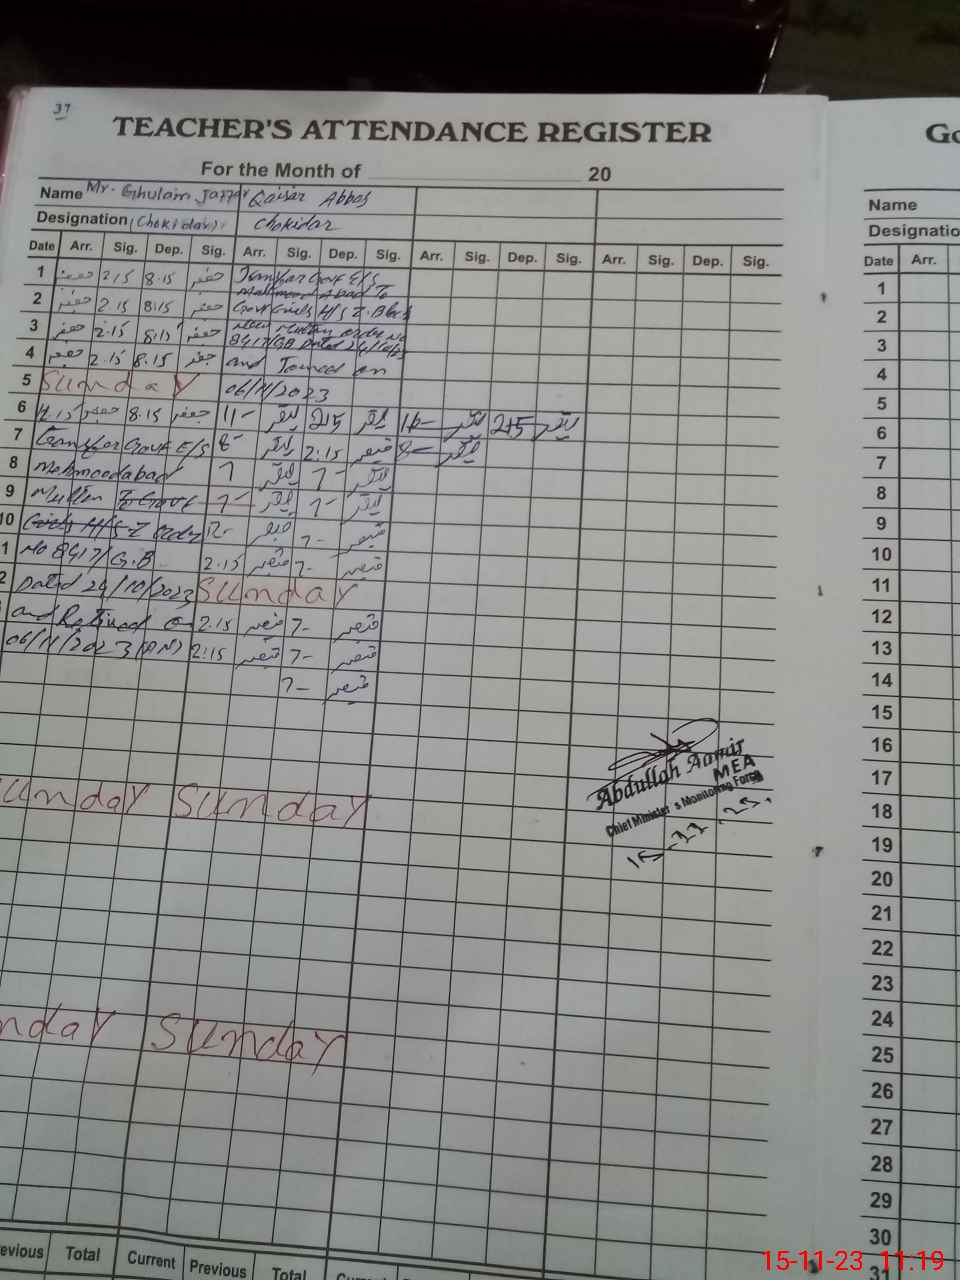 37
TEACHER'S ATTENDANCE REGISTER
For the Month of 20
Name Mr. Ghulam Jaffar Qaisar Abbas
Designation (Chokidar) Chokidar
Date Arr. Sig. Dep. Sig. Arr. Sig. Dep. Sig. Arr. Sig. Dep. Sig. Arr. Sig. Dep. Sig.
1 جعفر 2.15 8.15 جعفر Transfer Govt E/S
2 جعفر 2.15 8.15 جعفر Govt Girls H/S Z. Block
3 جعفر 2.15 8.15 جعفر 8417/GB Dated 24/10/23
4 جعفر 2.15 8.15 جعفر and Joined on
5 Sunday 06/11/2023
6 جعفر 8.15 جعفر 11- 215 215
7 Transfar Govt E/S 8- 2:15 قیصر 8-
8 Mehmoodabad 7 7-
9 Multan To Govt 7- 7-
10 Girls H/S-Z 12- 7- قیصر
1 No 8417/G.B 2.15 قیصر 7- قیصر
2 Dated 24/10/2023 Sunday
and Retired on 2.15 قیصر 7- قیصر
06/11/2023 (AN) 2:15 قیصر 7- قیصر
7- قیصر
Abdullah Aamir
MEA
Chief Minister's Monitoring Force
15-11-23.
unday Sunday
nday Sunday
evious Total Current Previous Total
Go
Name
Designatio
Date Arr.
1
2
3
4
5
6
7
8
9
10
11
12
13
14
15
16
17
18
19
20
21
22
23
24
25
26
27
28
29
30
31
15-11-23 11:19